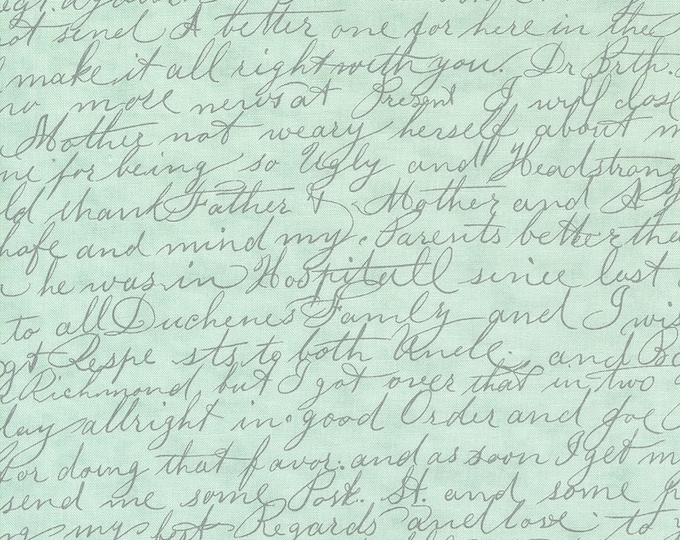 not send A better one for here in the
make it all right with you. Dr Brth.
no more news at Present I will close
Mother not weary herself about m
me for being so Ugly and Headstrong
ld thank Father & Mother and A
hafe and mind my Parents better the
he was in Hospitall since last
to all Duchenes Family and I wis
Respe sts to both Uncle. and
Richmond, but I got over that in two
day allright in good Order and Joe
for doing that favor. and as soon I get m
send me some Post. St. and some p
my fost Regards and love to